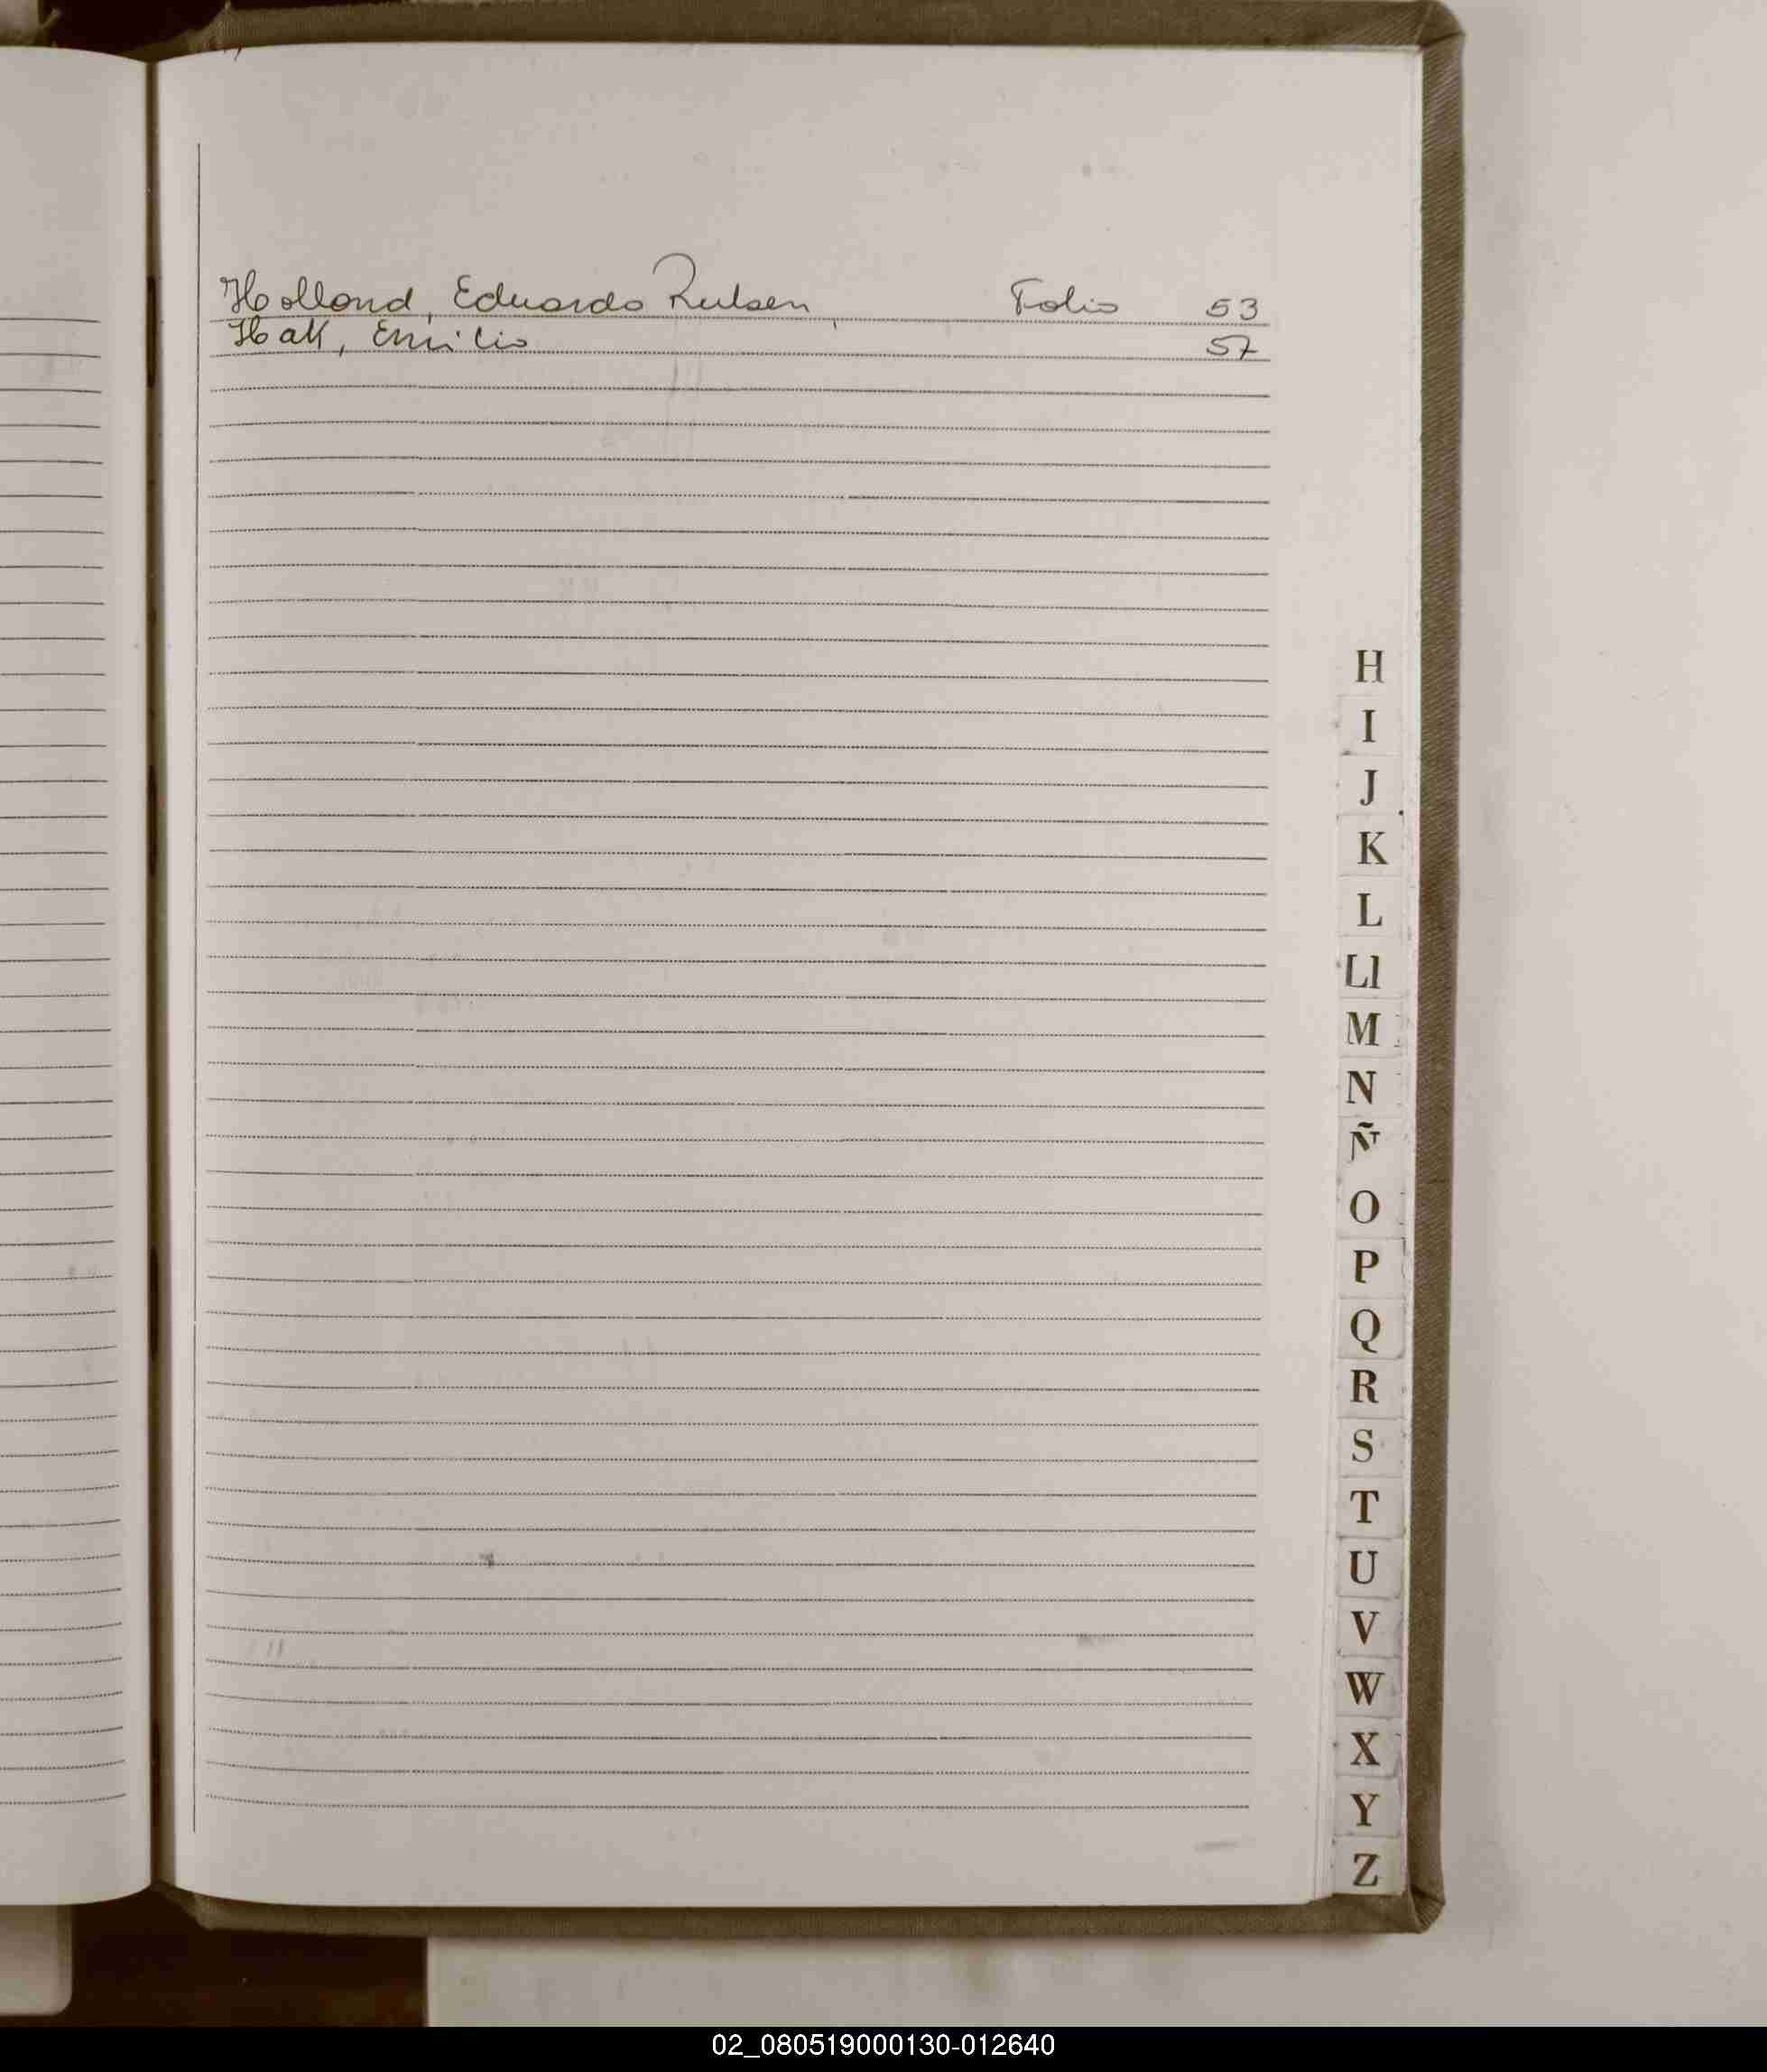 Holland, Eduardo Folio 53
Hall, Emilio 57
H
I
J
K
L
Ll
M
N
Ñ
O
P
Q
R
S
T
U
V
W
X
Y
Z
02_080519000130-012640